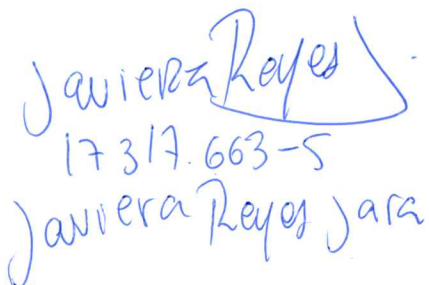 Javiera Reyes J.
17317.663-5
Javiera Reyes Jara